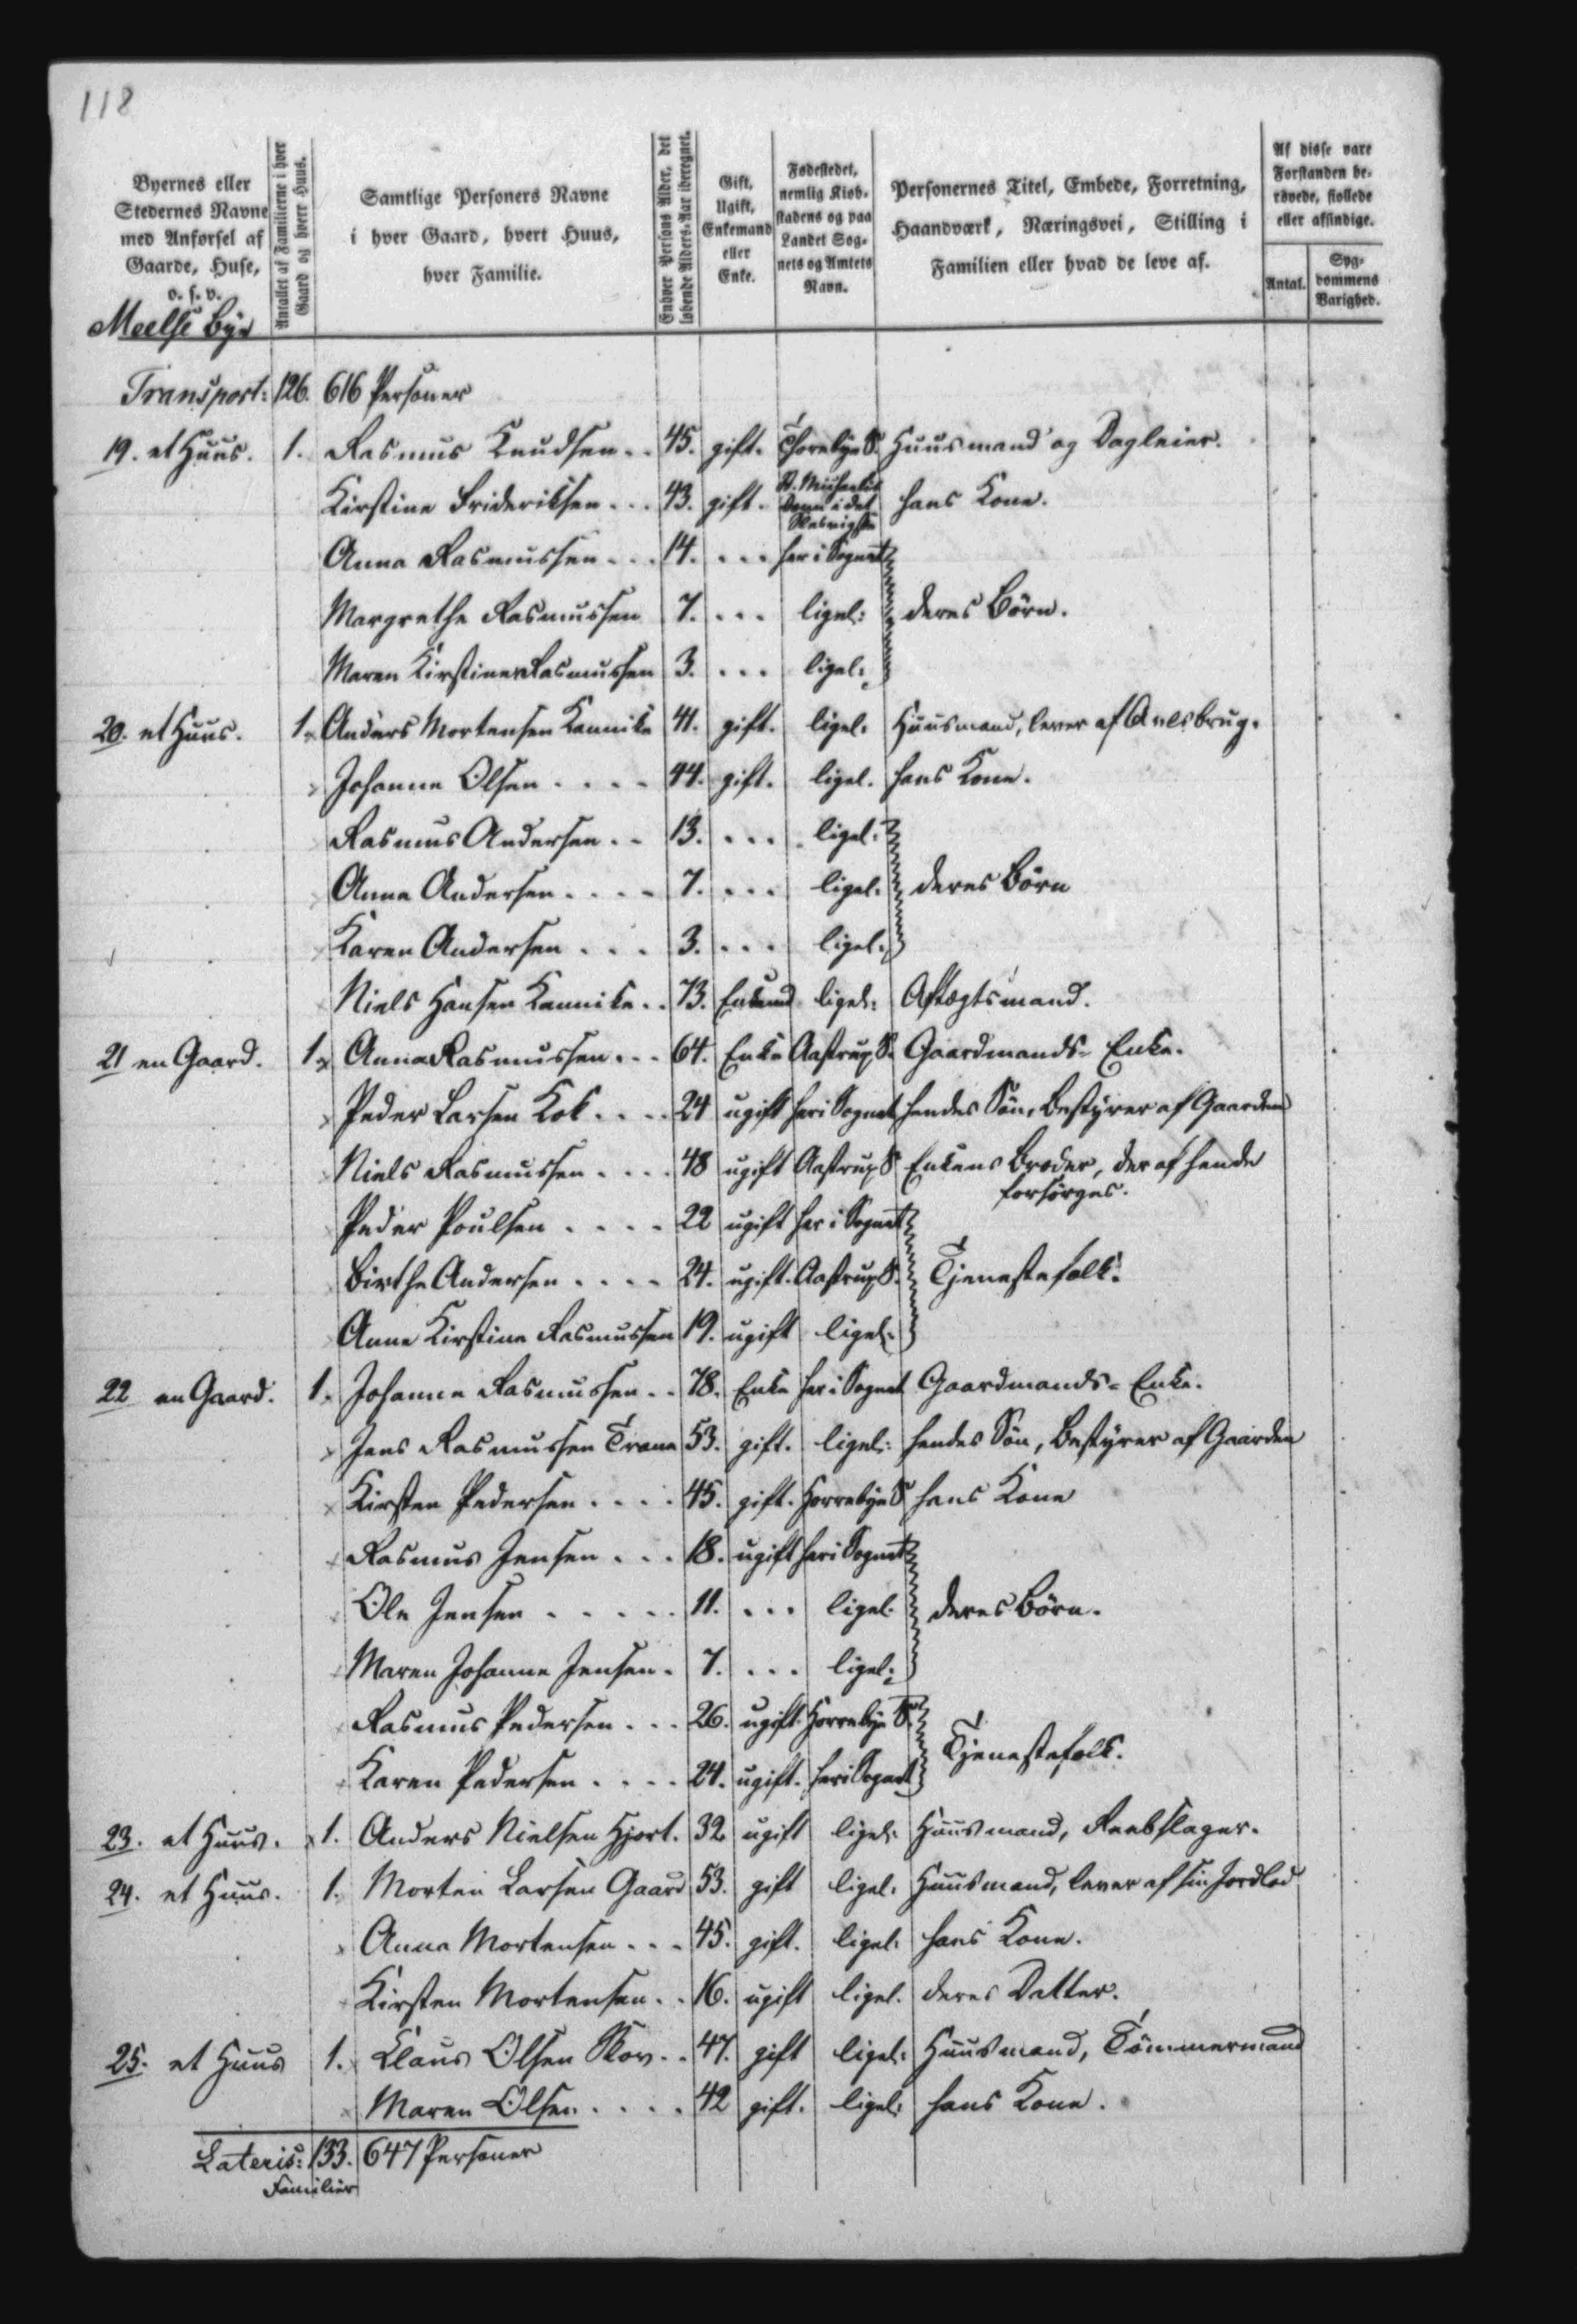 118
Byernes eller
Stedernes Navne
med Anførsel af
Gaarde, Huse,
o. s. v.
Antallet af Familierne i hver
Gaard og hvert Huus.
Samtlige Personers Navne
i hver Gaard, hvert Huus,
hver Familie.
Enhver Persons Alder, det
løbende Alders-Aar iberegnet.
Gift,
Ugift,
Enkemand
eller
Enke.
Fødestedet,
nemlig Kiøb-
stadens og paa
Landet Sog-
nets og Amtets
Navn.
Personernes Titel, Embede, Forretning,
Haandværk, Næringsvei, Stilling i
Familien eller hvad de leve af.
Af disse vare
Forstanden be-
røvede, fiollede
eller afsindige.
Antal.
Syg-
dommens
Varighed.
Meelse Bye
Transport: 126. 616 Personer
19. et Huus. 1. Rasmus Knudsen 45. gift. Thorebye S. Huusmand og Dagleier.
Kirstine Frideriksen 43. gift. hans Kone.
Anna Rasmussen 14. her i Sognet
Margrethe Rasmussen 7. ligel: deres Börn.
Maren Kirstine Rasmussen 3. ligel:
20. et Huus. 1. Anders Mortensen Kannike 41. gift. ligel: Huusmand, lever af Avlsbrug.
Johanne Olsen 44. gift. ligel. hans Kone.
Rasmus Andersen 13. ligel:
Anne Andersen 7. ligel: deres Börn
Karen Andersen 3. ligel:
Niels Hansen Kannike 73. Enkemd ligel: Aftægtsmand.
21 en Gaard. 1 Anna Rasmussen 64. Enke Aastrup S. Gaardmands-Enke.
Peder Larsen Kok 24 ugift her i Sognet hendes Sön, bestyrer af Gaarden
Niels Rasmussen 48 ugift Aastrup S Enkens Broder, der af hende
forsörges.
Peder Poulsen 22 ugift her i Sognet
Birthe Andersen 24. ugift. Aastrup S. Tjenestefolk.
Anne Kirstine Rasmussen 19. ugift ligel:
22 en Gaard. 1. Johanne Rasmussen 78. Enke her i Sognet Gaardmands-Enke.
Jens Rasmussen Trane 53. gift. ligel: hendes Sön, bestyrer af Gaarden
Kirsten Pedersen 45. gift. Horrebye S hans Kone
Rasmus Jensen 18. ugift her i Sognet
Ole Jensen 11. ligel. deres Börn.
Maren Johanne Jensen 7. ligel:
Rasmus Pedersen 26. ugift. Horrebye S.
Karen Pedersen 24. ugift. her i Sognet Tjenestefolk.
23. et Huus. 1. Anders Nielsen Hjort. 32 ugift ligel: Huusmand, Reebslager.
24. et Huus. 1. Morten Larsen Gaard 53. gift ligel: Huusmand, lever af sin Jordlod
Anna Mortensen 45. gift. ligel: hans Kone.
Kirsten Mortensen 16. ugift ligel. deres Datter.
25. et Huus 1. Claus Olsen Skov 47. gift ligel: Huusmand, Tömmermand
Maren Olsen 42 gift. ligel: hans Kone.
Lateris: 133. 647 Personer
Familier